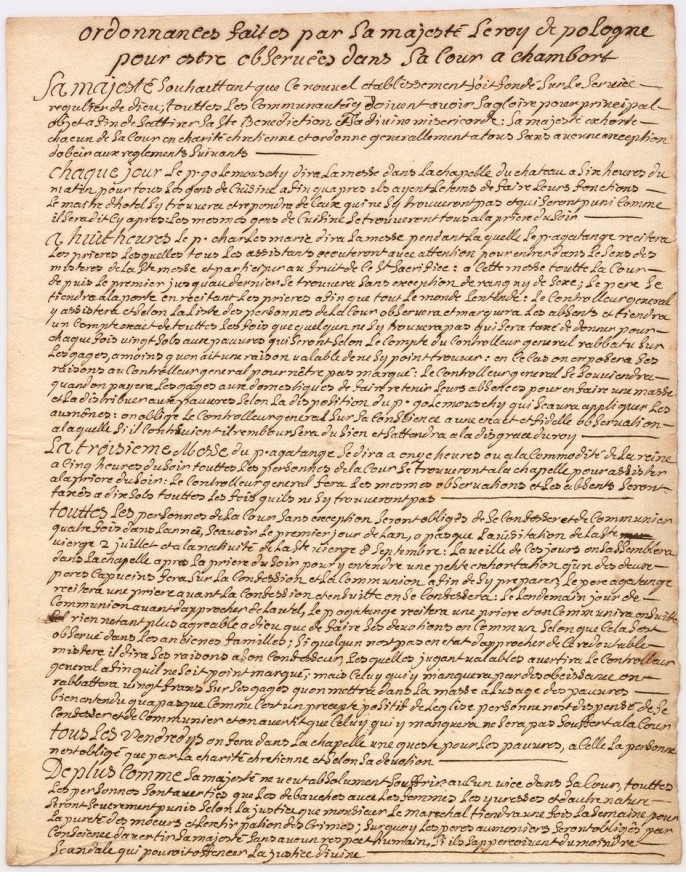 ordonnances faites par Sa majesté Le roy de pologne
pour estre observées dans Sa Cour a chambort
Sa majesté Souhaittant que ce nouvel etablissement soit fondé Sur Le Service
regulier de dieu, touttes Les Communautéz doivent avoir Sa gloire pour principal
objet afin de S'attirer La Ste Benediction & La divine misericorde: Sa majesté exhorte
chacun de Sa Cour en charité chretienne et ordonne generallement a tous Sans aucune exception
d'obeir aux reglements Suivants
chaque jour Le p. golemouschy dira La messe dans La chapelle du chateau a Six heures du
matin pour tous Les gens de Cuisine afin qu'apres ils ayent Le tems de faire Leurs fonctions
Le maitre d'hotel S'y trouvera et repondra de Ceux qui ne S'y trouveront pas et qui Seront puni Comme
il Sera dit Cy apres: Les mesmes gens de Cuisine Se trouveront tous a La priere du Soir
a huit heures Le p. charles marie dira La messe pendant Laquelle Le p. agatange recitera
Les prieres Lesquelles tous Les assistants ecouteront avec attention pour entrer dans Le Sens des
misteres de La Ste messe et participer au fruit de Ce St Sacrifice: a Cette messe toutte La Cour
depuis Le premier jusqu'au dernier Se trouvera Sans exception de rang ny de Sexe; Le pere Se
tiendra a La porte en recitant Les prieres afin que tout Le monde L'entende: Le Controlleur general
y assistera et Selon La Liste des personnes de La Cour observera et marquera Les absents et tiendra
un Compte exact de touttes Les fois que quelqu'un ne S'y trouvera pas qui Sera taxé de donner pour
chaque fois vingt Sols aux pauvres qui Seront Selon Le Compte du Controlleur general rabbatu Sur
Ses gages, a moins qu'on ait une raison valable de ne S'y point trouver: en Ce Cas on exposera Ses
raisons au Controlleur general pour n'être pas marqué: Le Controlleur general Se Souviendra
quand on payera Les gages aux domestiques de faire retenir Leurs absences pour en faire une masse
et La distribuer aux pauvres Selon La disposition du p. golemouschy qui Scaura appliquer Les
aumônes: on oblige Le Controlleur general Sur Sa Conscience a une exacte et fidelle observation
a Laquelle S'il Contrevient il remboursera du Sien et S'attendra a La disgrace du roy
La troisieme Messe du p. agatange Se dira a onze heures ou a La Commodité de La reine
a Cinq heures du Soir touttes Les personnes de La Cour Se trouveront a La chapelle pour assister
a La priere du Soir: Le Controlleur general fera Les mesmes observations et Les absents Seront
taxés a dix Sols touttes Les fois qu'ils ne S'y trouveront pas
touttes Les personnes de La Cour Sans exception Seront obligés de Se Confesser et de Communier
quatre fois dans L'année, Scavoir Le premier jour de L'an, a pasque La visitation de La Ste
vierge 2 juillet et a La nativité de La Ste vierge 8 Septembre: La veille de Ces jours on S'assemblera
dans La chapelle apres La priere du Soir pour y entendre une petite exhortation qu'un des deux
peres Capucins fera Sur La Confession et La Communion afin de S'y preparer, Le pere agatange
recitera une priere avant La Confession et ensuitte on Se Confessera: Le Lendemain jour de
Communion avant d'approcher de L'autel, Le p. agatange recitera une priere et on Communira ensuite
rien n'etant plus agreable a dieu que de faire Ses devotions en Commun, Selon que Cela S'est
observé dans Les anciennes familles; Si quelqu'un n'est pas en etat d'approcher de Ce redoutable
mistere il dira Ses raisons a Son Confesseur, Lesquelles jugeant valables avertira Le Controlleur
general afin qu'il ne Soit point marqué; mais Celuy qui y manquera par desobeissance on
rabbattera vingt frans Sur Ses gages qu'on mettra dans La masse a L'usage des pauvres
bien entendu qu'a pasque Comme C'est un precepte positif de L'eglise personne n'est dispensé de Se
Confesser et de Communier et on avertit que Celuy qui y manquera ne Sera pas Souffert a La Cour
tous Les vendredys on fera dans La chapelle une queste pour Les pauvres, a Celle La personne
n'est obligé que par La charité chretienne et Selon Sa devotion
De plus Comme Sa majesté ne veut absolument Souffrir aucun vice dans Sa Cour, touttes
Les personnes Sont averties que Les debauches avec Les femmes Les yvresses et d'autre nature
Seront Severement punis Selon La justice que monsieur Le marechal tiendra une fois La Semaine pour
La pureté des moeurs et L'extirpation des Crimes; Surquoy Les peres aumoniers Seront obligés par
Conscience d'avertir Sa majesté Sans aucun respect humain, S'ils apperçoivent du moindre
Scandale qui pouroit offencer La justice divine